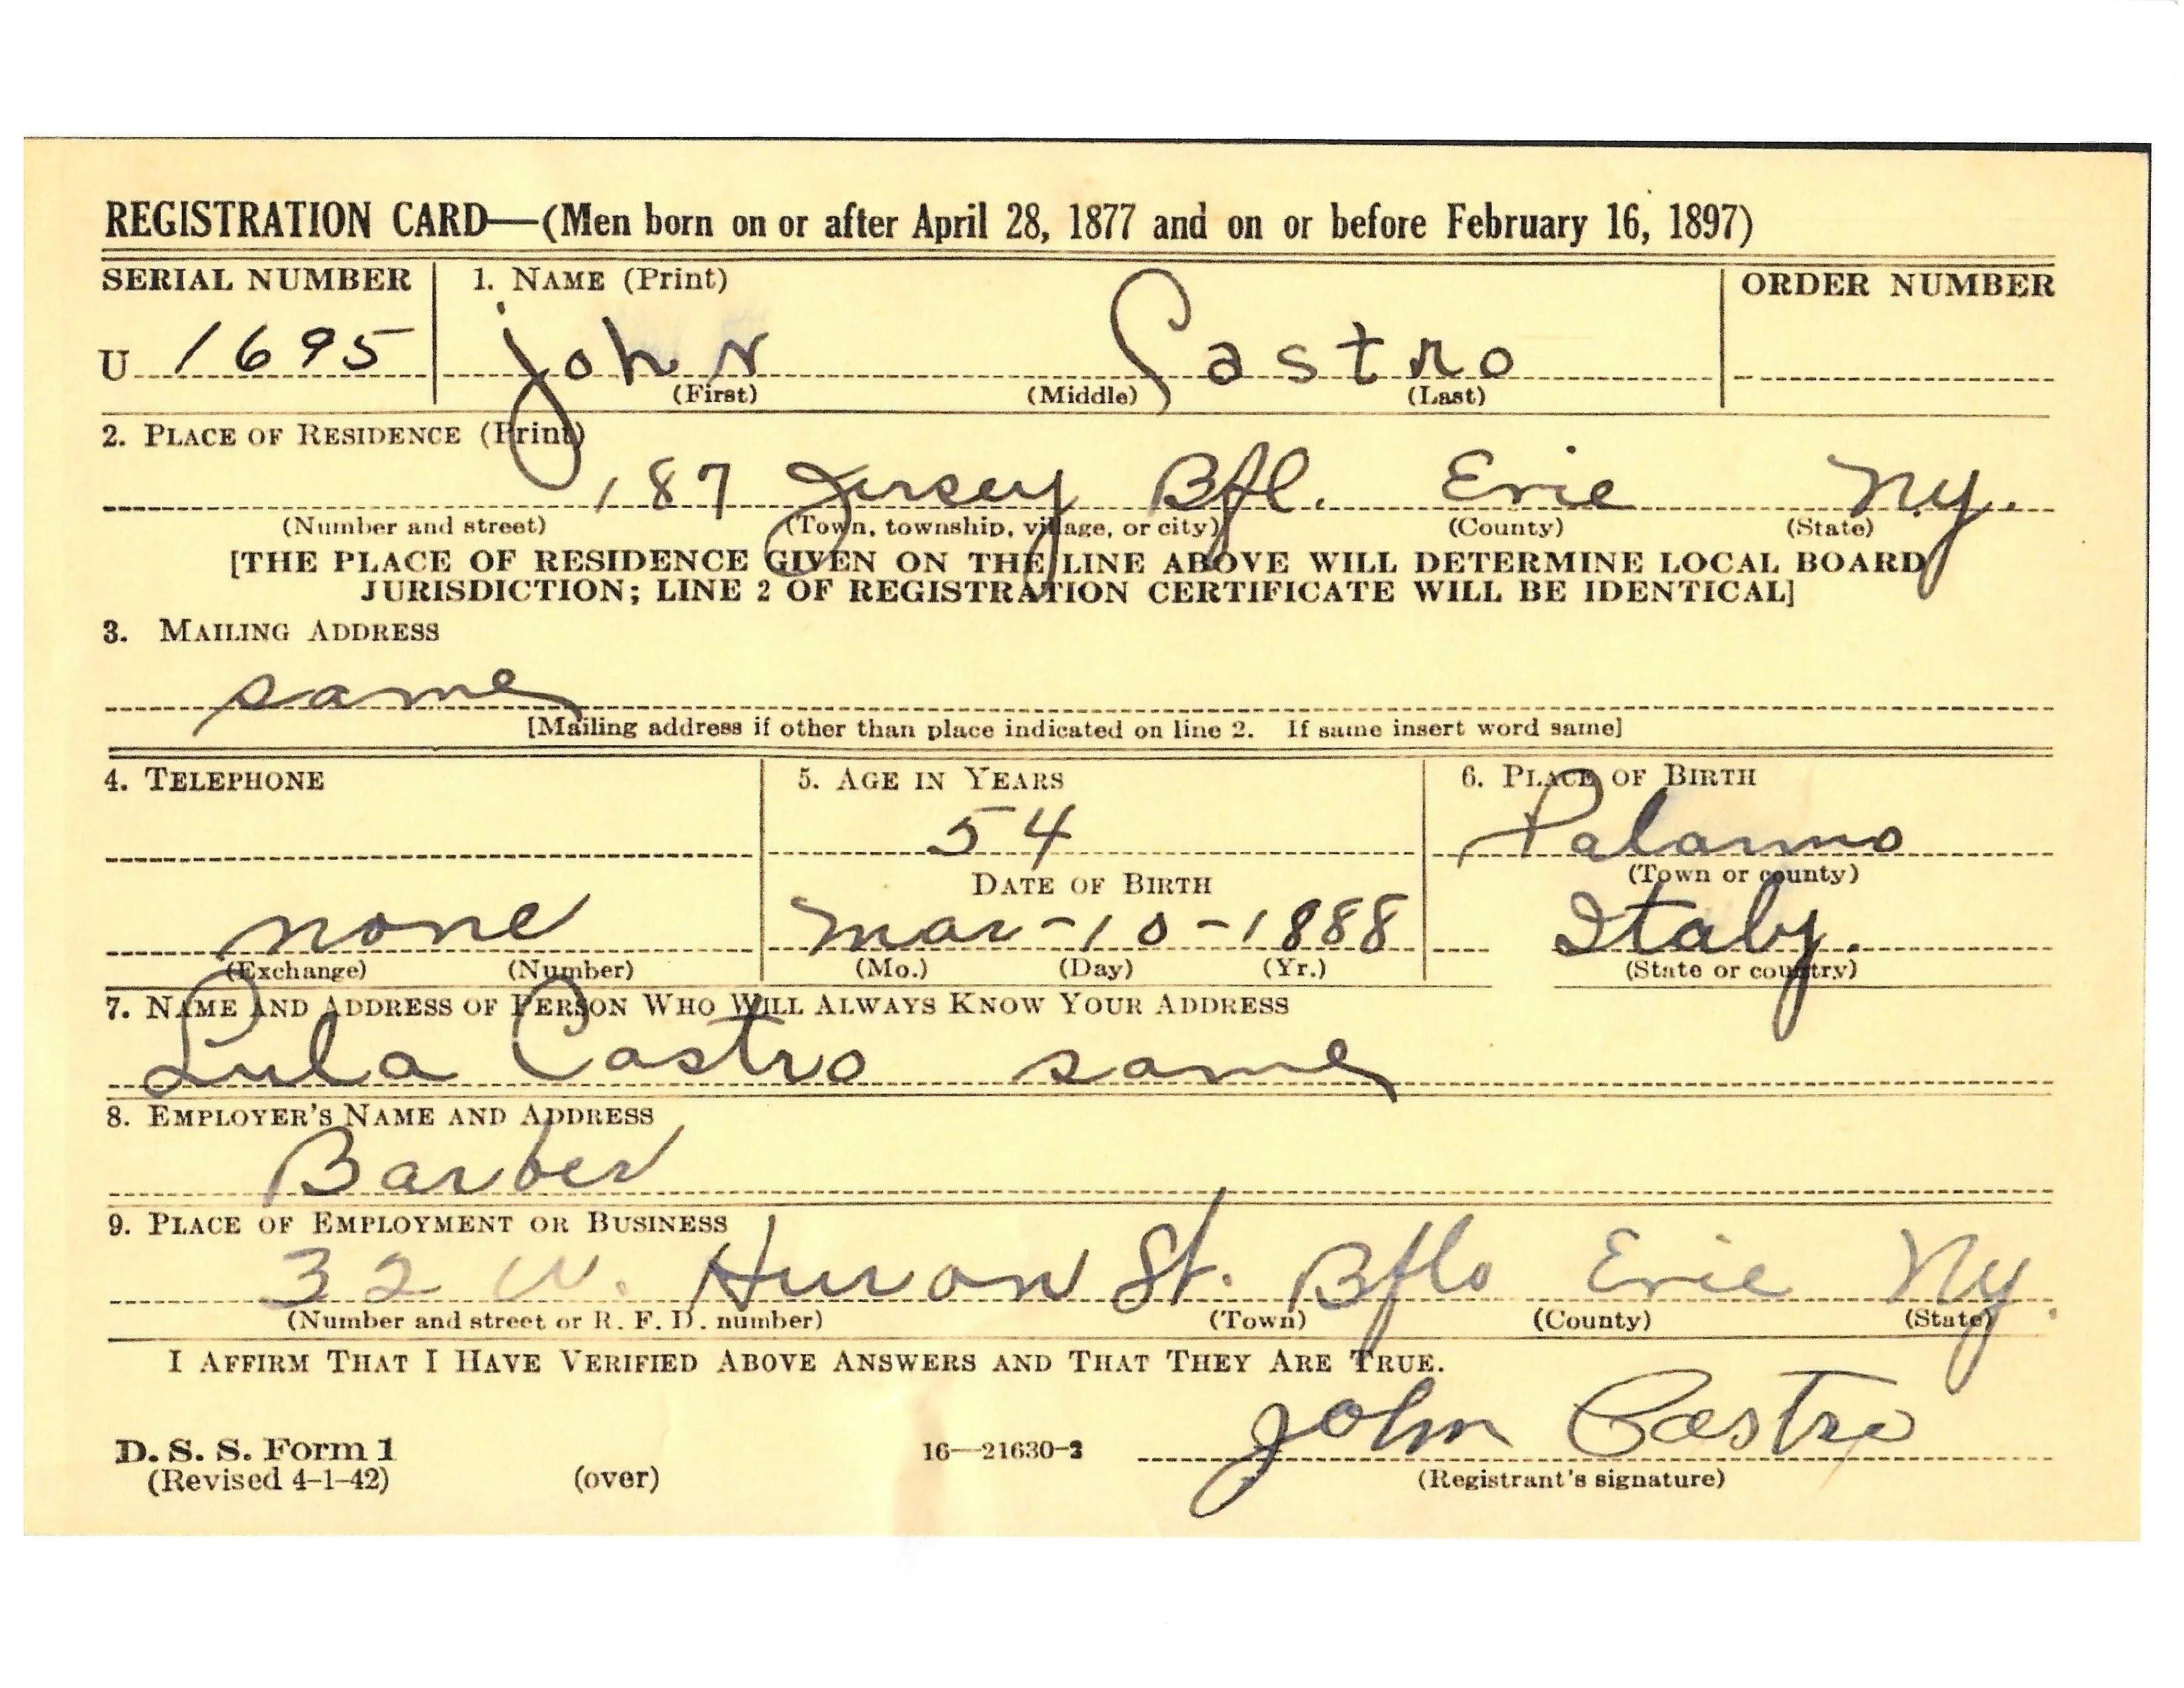 REGISTRATION CARD—(Men born on or after April 28, 1877 and on or before February 16, 1897)
SERIAL NUMBER 1. NAME (Print) ORDER NUMBER
U 1695 John Castro
(First) (Middle) (Last)
2. PLACE OF RESIDENCE (Print)
187 Jersey Bfl. Erie N.Y.
(Number and street) (Town, township, village, or city) (County) (State)
[THE PLACE OF RESIDENCE GIVEN ON THE LINE ABOVE WILL DETERMINE LOCAL BOARD
JURISDICTION; LINE 2 OF REGISTRATION CERTIFICATE WILL BE IDENTICAL]
3. MAILING ADDRESS
same
[Mailing address if other than place indicated on line 2. If same insert word same]
4. TELEPHONE 5. AGE IN YEARS 6. PLACE OF BIRTH
54 Palarmo
DATE OF BIRTH (Town or county)
none Mar-10-1888 Italy.
(Exchange) (Number) (Mo.) (Day) (Yr.) (State or country)
7. NAME AND ADDRESS OF PERSON WHO WILL ALWAYS KNOW YOUR ADDRESS
Lula Castro same
8. EMPLOYER'S NAME AND ADDRESS
Barber
9. PLACE OF EMPLOYMENT OR BUSINESS
32 W. Huron St. Bflo Erie Ny.
(Number and street or R. F. D. number) (Town) (County) (State)
I AFFIRM THAT I HAVE VERIFIED ABOVE ANSWERS AND THAT THEY ARE TRUE.
John Castro
D. S. S. Form 1 16—21630-2
(Revised 4-1-42) (over) (Registrant's signature)